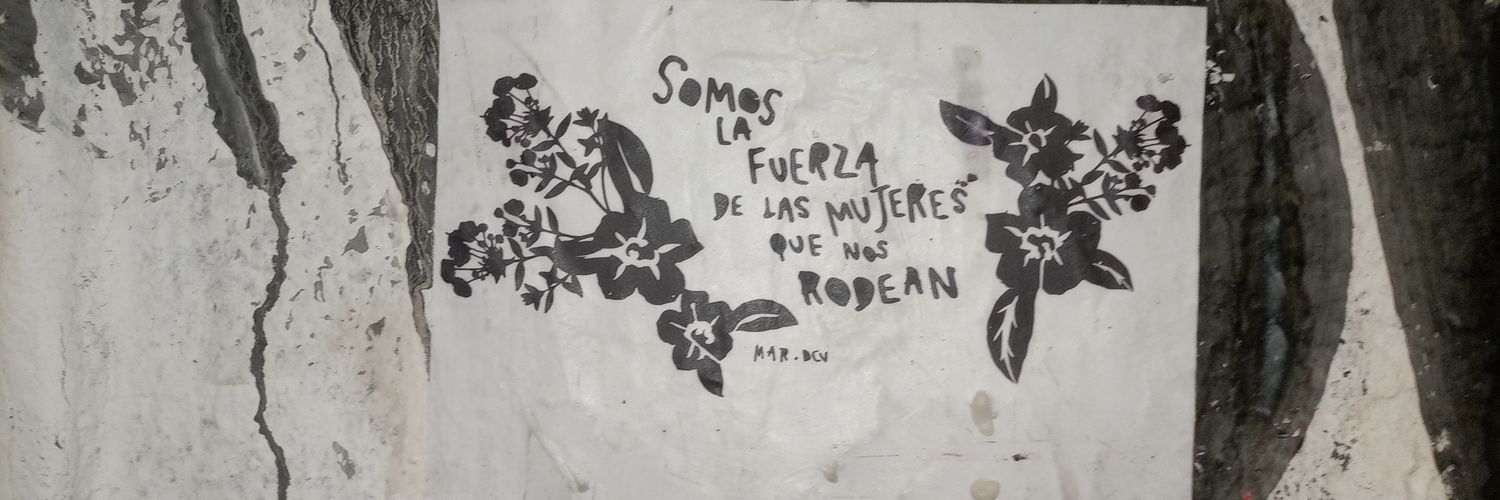 SOMOS
LA
FUERZA
DE LAS MUJERES
QUE NOS
RODEAN
MAR.DCV